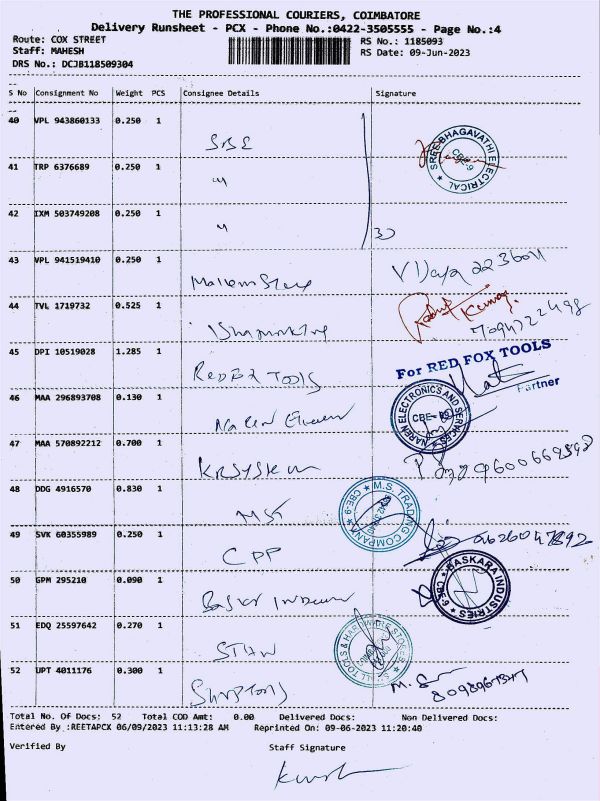 THE PROFESSIONAL COURIERS, COIMBATORE
Delivery Runsheet - PCX - Phone No.:0422-3505555 - Page No.:4
Route: COX STREET RS No.: 1185093
Staff: MAHESH RS Date: 09-Jun-2023
DRS No.: DCJB118509304
S No Consignment No Weight PCS Consignee Details Signature
40 VPL 943860133 0.250 1 SBE SREE BHAGAVATHI ELECTRICAL CBE-9
41 TRP 6376689 0.250 1 "
42 IXM 503749208 0.250 1 "
43 VPL 941519410 0.250 1 Vijaya 2236011
44 TVL 1719732 0.525 1 Kumar 7094722498
45 DPI 10519028 1.285 1 REDFOX TOOLS For RED FOX TOOLS Partner
46 MAA 296893708 0.130 1 Naren NAREN ELECTRONICS AND SERVICES CBE-
47 MAA 570892212 0.700 1 KR System
48 DDG 4916570 0.830 1 MST M.S. TRADING COMPANY CBE-9
49 SVK 60355989 0.250 1 CPP
50 GPM 295210 0.090 1 BASKARA INDUSTRIES CBE-9
51 EDQ 25597642 0.270 1 STHW ALL TOOLS & HARDWARE STORES
52 UPT 4011176 0.300 1 M. S
Total No. Of Docs: 52 Total COD Amt: 0.00 Delivered Docs: Non Delivered Docs:
Entered By :REETAPCX 06/09/2023 11:13:28 AM Reprinted On: 09-06-2023 11:20:40
Verified By Staff Signature